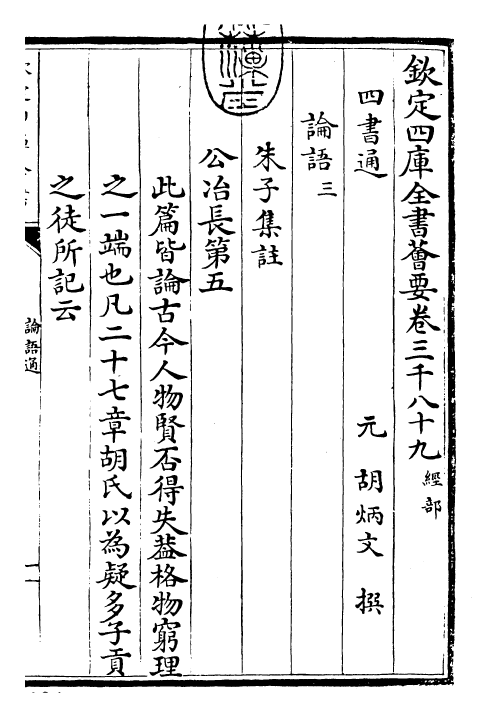 欽定四庫全書薈要卷三千八十九 經部
四書通 元 胡炳文 撰
論語三
朱子集註
公冶長第五
此篇皆論古今人物賢否得失葢格物窮理
之一端也凡二十七章胡氏以為疑多子貢
之徒所記云
論語通